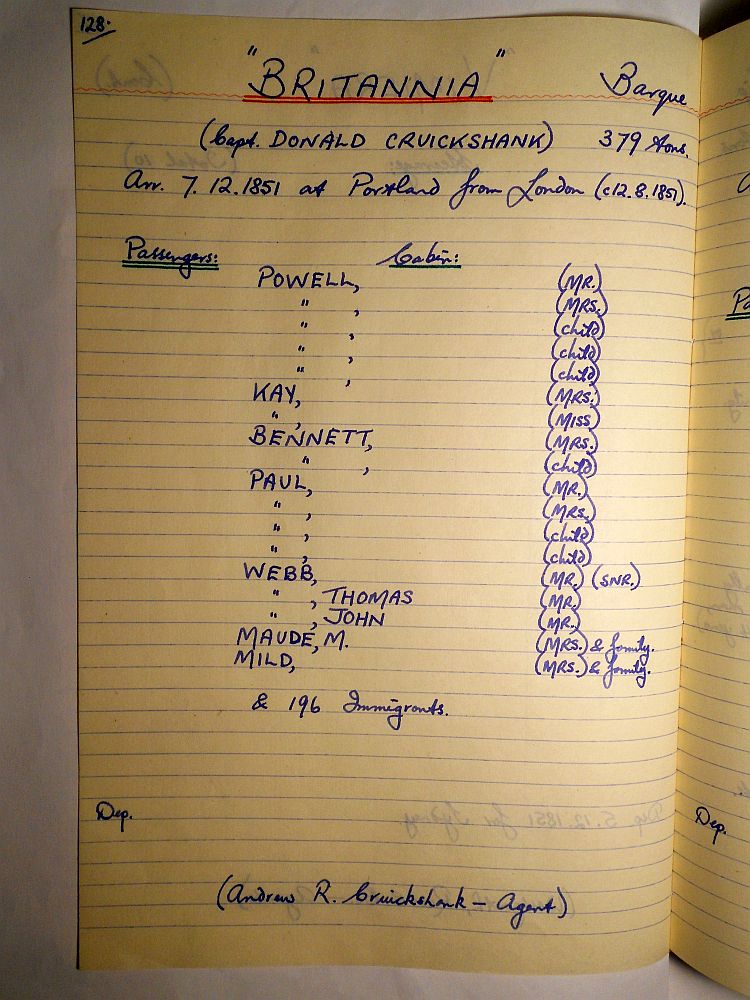 128.
"BRITANNIA" Barque
(Capt. DONALD CRUICKSHANK) 379 tons.
Arr. 7.12.1851 at Portland from London (c12.8.1851).
Passengers: Cabin:
POWELL, (MR.)
" , (MRS.)
" , (child)
" , (child)
" , (child)
KAY, (MRS.)
" , (MISS)
BENNETT, (MRS.)
" , (child)
PAUL, (MR.)
" , (MRS.)
" , (child)
" , (child)
WEBB, (MR.) (SNR.)
" , THOMAS (MR.)
" , JOHN (MR.)
MAUDE, M. (MRS.) & family.
MILD, (MRS.) & family.
& 196 Immigrants.
Dep.
(Andrew R. Cruickshank - Agent)
Dep.